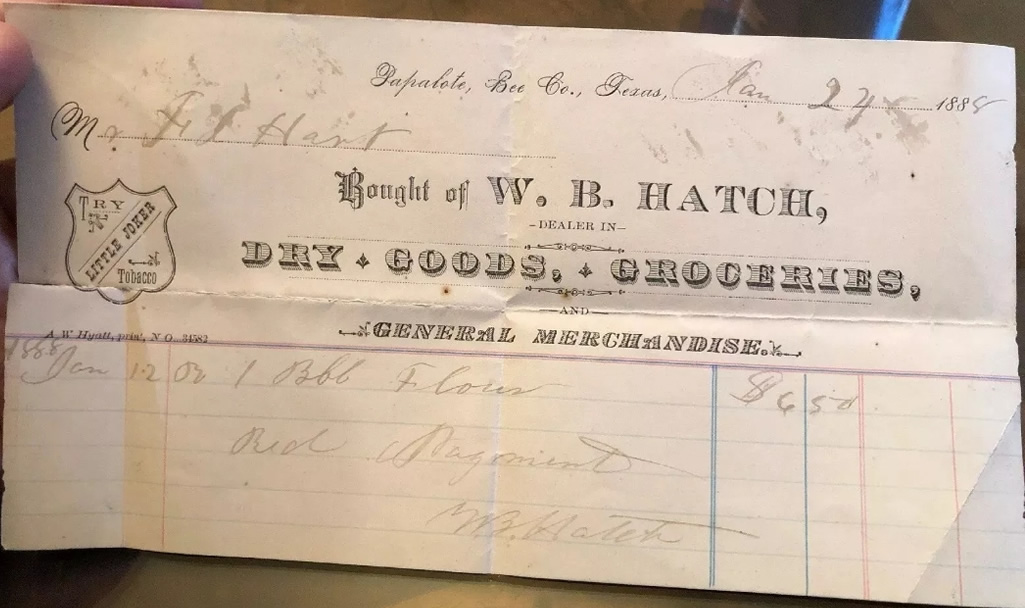 Papalote, Bee Co., Texas, Jan 24 1888
Mr Hart
Bought of W. B. HATCH,
-DEALER IN-
DRY GOODS, GROCERIES,
-AND-
GENERAL MERCHANDISE.
TRY
LITTLE JOKER
Tobacco
A. W. Hyatt, print, N O 34582
1888
Jan 12 1 Bbl Flour $6 50
Recd Payment
W.B. Hatch